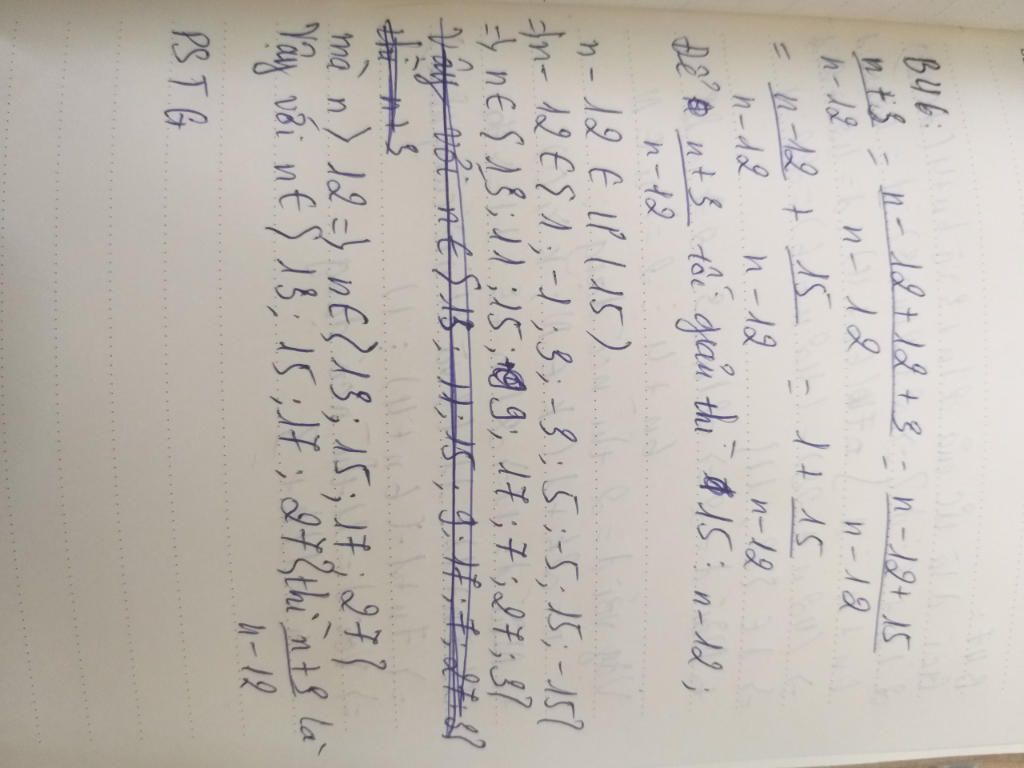 B46:
n+3/n-12 = n-12+12+3/n-12 = n-12+15/n-12
= n-12/n-12 + 15/n-12 = 1 + 15/n-12
Để n+3/n-12 tối giản thì 15 : n-12;
n-12 ∈ Ư(15)
=> n-12 ∈ {1; -1; 3; -3; 5; -5; 15; -15}
=> n ∈ {13; 11; 15; 9; 17; 7; 27; 3}
Vậy với n ∈ {13; 11; 15; 9; 17; 7; 27; 3}
thì n+3
mà n > 12 => n ∈ {13; 15; 17; 27}
Vậy với n ∈ {13; 15; 17; 27} thì n+3/n-12 là
PSTG